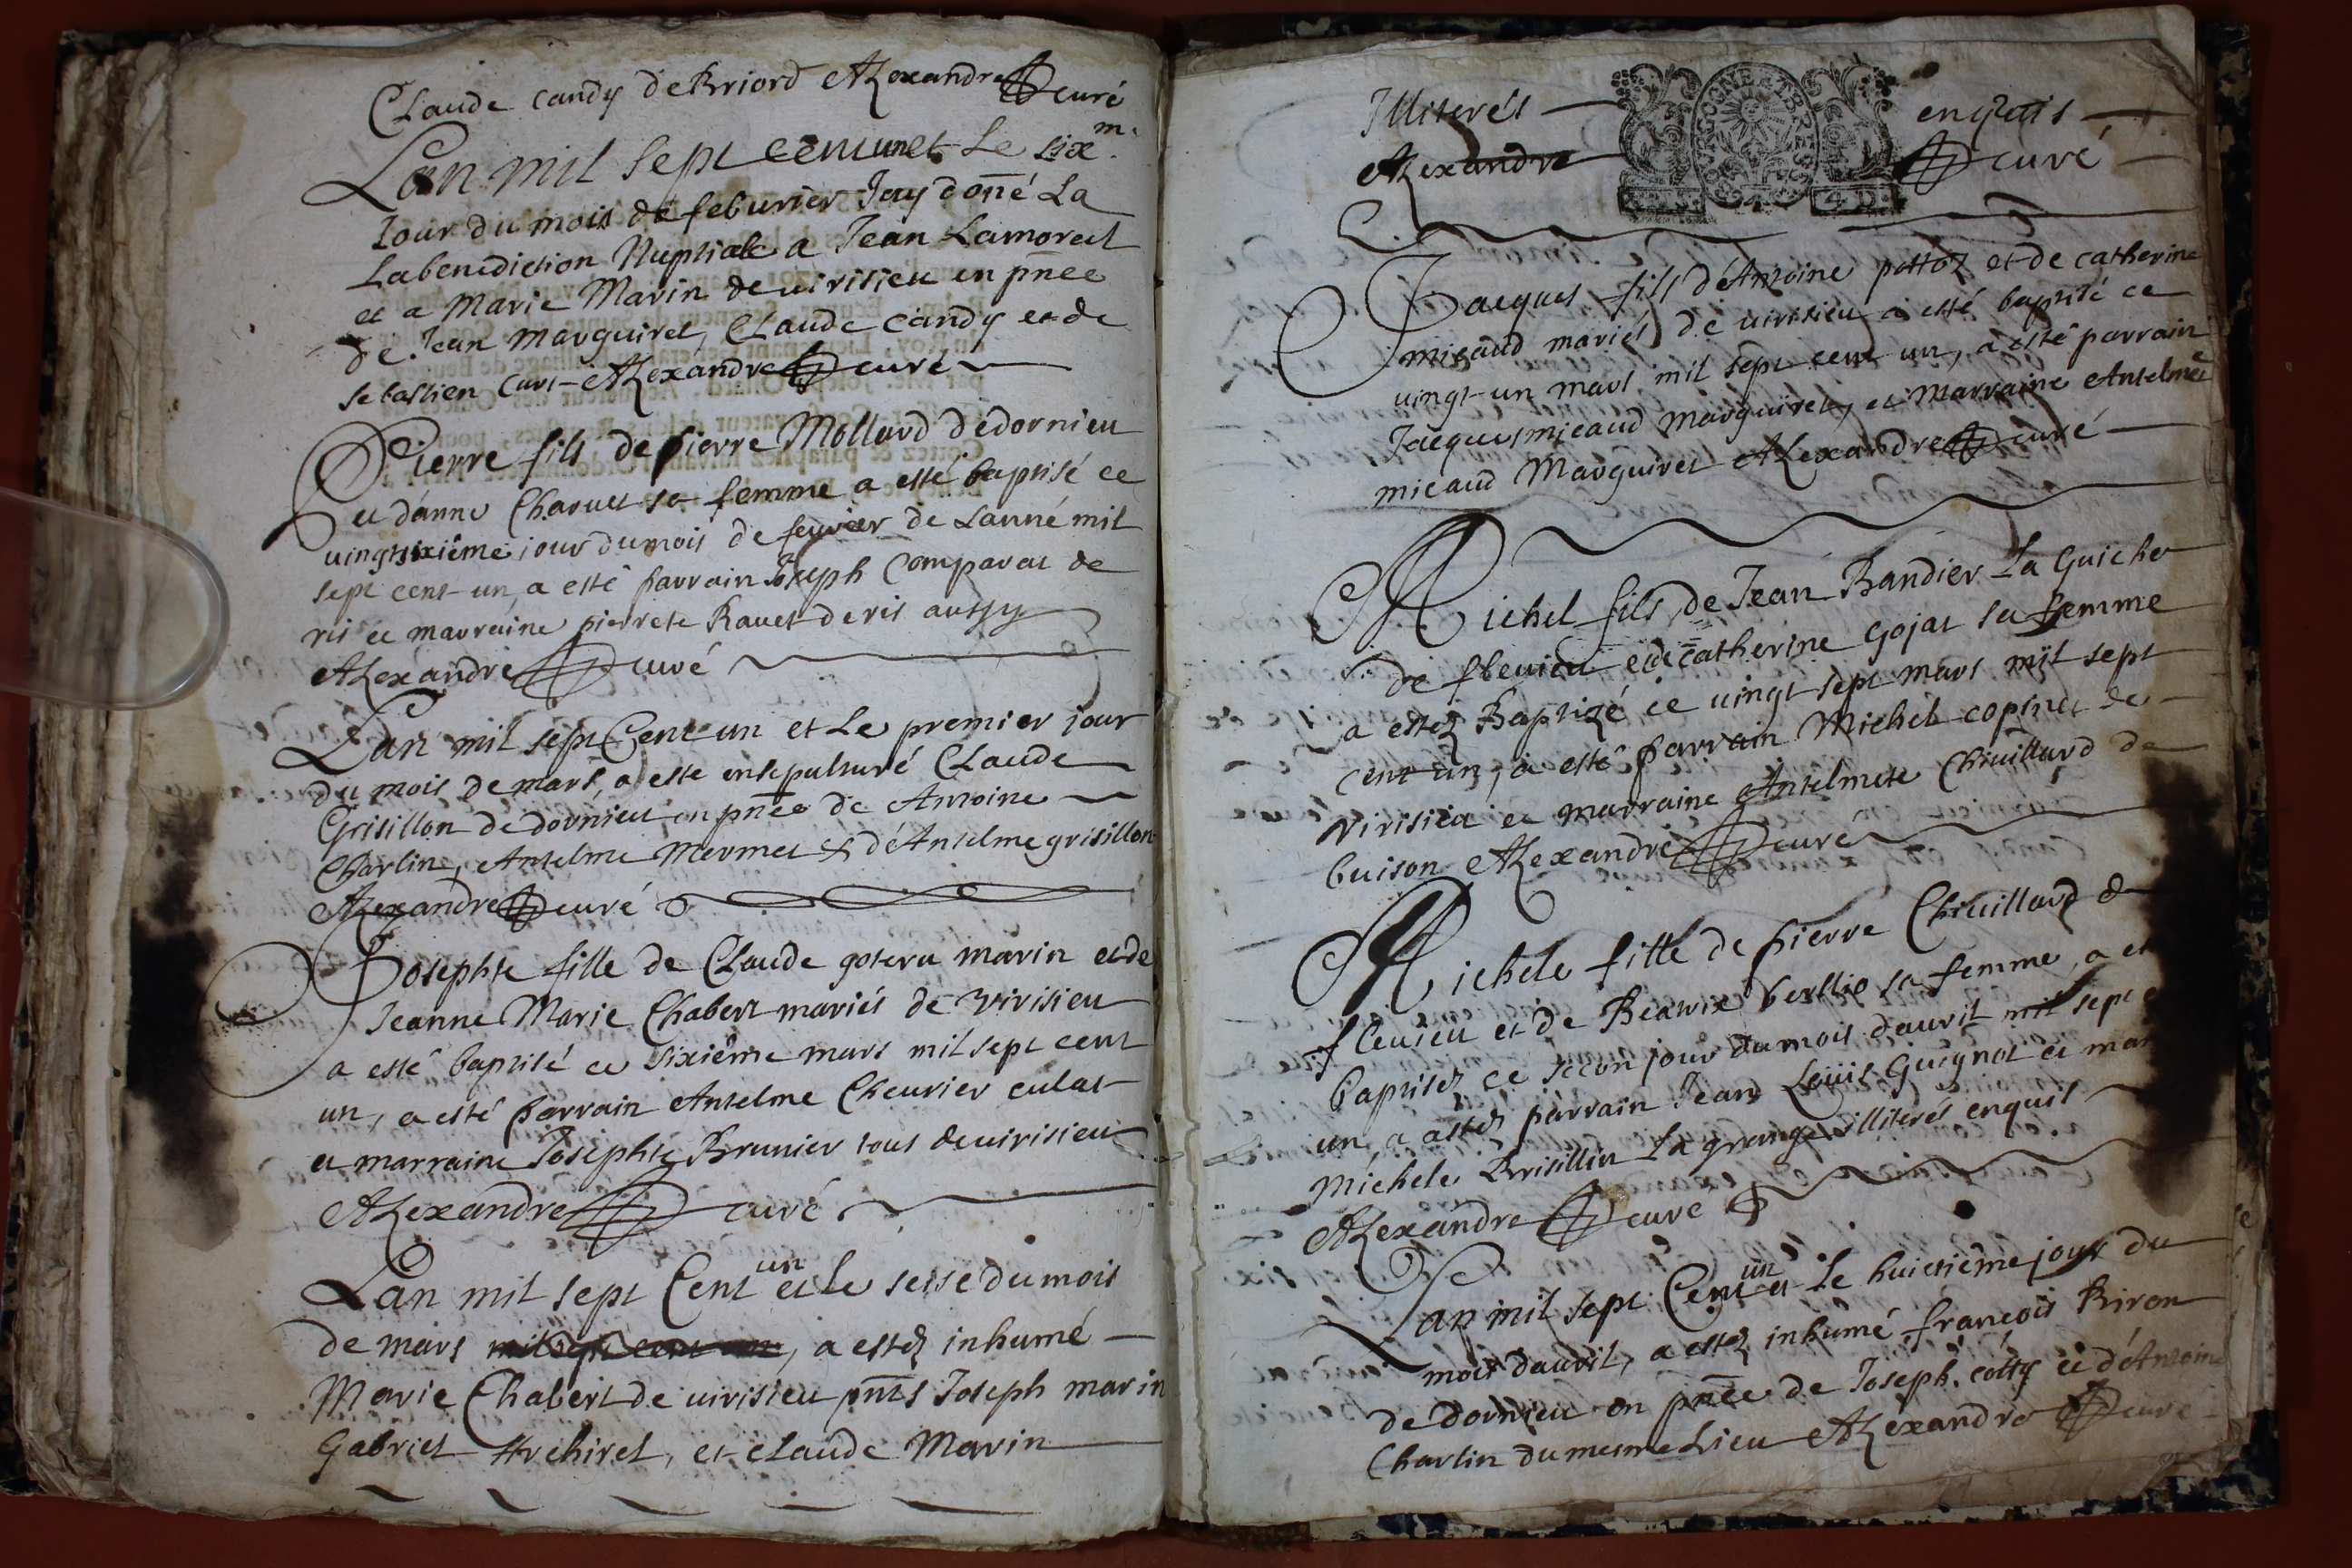 Claude Candy de Briord Alexandre curé
Lan mil sept cent un et Le six.m.
Iour du mois de feburier Jay doñé La
La benediction Nuptiale a Jean Lamorat
et a Marie Marin de uirisieu en pñee
de Jean Marguiret, Claude Candy et de
sebastien Curt Alexandre curé
Pierre fils de pierre Mollard dedornieu
et d'anne Charuet sa femme a esté baptisé ce
uingtsixiême iour du mois de feuvier de Lanné mil
sept cent un, a esté parrain Joseph Comparat de
ris et marraine pierrete Rauet de ris aussy
Alexandre curé
Lan mil sept Cent un et Le premier iour
du mois de mars, a esté ensepulturé Claude
Grisillon de dornieu en pñee de Antoine
Charlin, Antelme Mermet & d'Antelme grisillon
Alexandre curé
Josephte fille de Claude goteru marin et de
Jeanne Marie Chabert mariés de virisieu
a esté baptisé ce sixiême mars mil sept cent
un, a esté parrain Antelme Cheurier culat
et marraine Josephte Brunier tous de uirisieu
Alexandre curé
Lan mil sept Cent un et le seise du mois
de mars mil sept cent un, a estez inhumé
Marie Chabert de uirisieu pñts Joseph marin
Gabriel Archiret, et Claude Marin
Illiterés enquis
Alexandre curé
BOURGOGNE ET BRESSE
Jacques fils d'Antoine pottoz et de catherine
micaud mariés de uirisieu a esté baptisé ce
uingt-un mars mil sept cent un, a esté parrain
Jacques micaud Marguiret, et Marraine Antelmé
micaud Marguiret Alexandre curé
Michel fils de Jean Bandier La Guiche
de fleuieu et de catherine Gojat sa femme
a estez Baptizé ce uingt sept mars mil sept
cent un, a esté parrain Michel copinet de
virisieu et marraine Antelmete Chiuillard de
buison Alexandre curé
Michele fille de pierre Chiuillard d
fleuieu et de Beatrix berllio sa femme, a et
baptisez ce secon jour du mois dauril mil sept
un, a estez parrain Jean Louis Guignot et mar
Michele Brisillin La grange illiterés enquis
Alexandre curé
Lan mil sept Cent un et Le huictième jour du
mois dauril, a estez inhumé francois Biron
de dornieu en pñee de Joseph cotty et d'Antoine
Charlin du mesme Lieu Alexandre curé